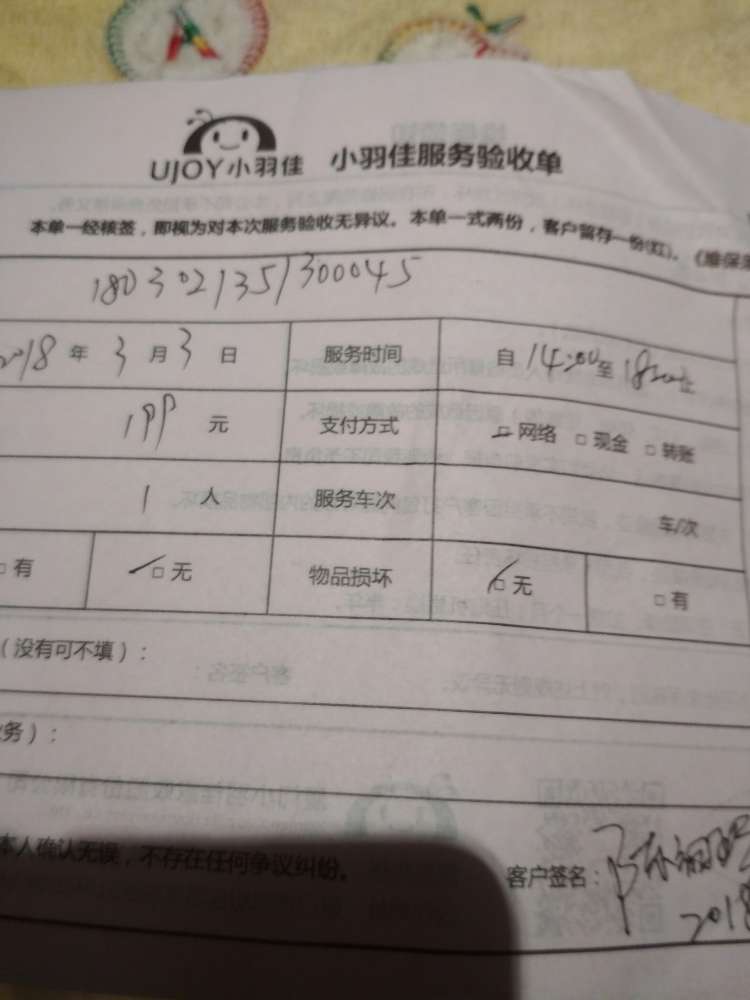 UJOY小羽佳 小羽佳服务验收单
本单一经核签，即视为对本次服务验收无异议。本单一式两份，客户留存一份(红)。《维保
1803021351300045
2018年3月3日 服务时间 自14:00至18:00止
199元 支付方式 □网络 □现金 □转账
1人 服务车次 车/次
□有 □无 物品损坏 □无 □有
（没有可不填）：
务）：
本人确认无误，不存在任何争议纠纷。
客户签名：陈
2018